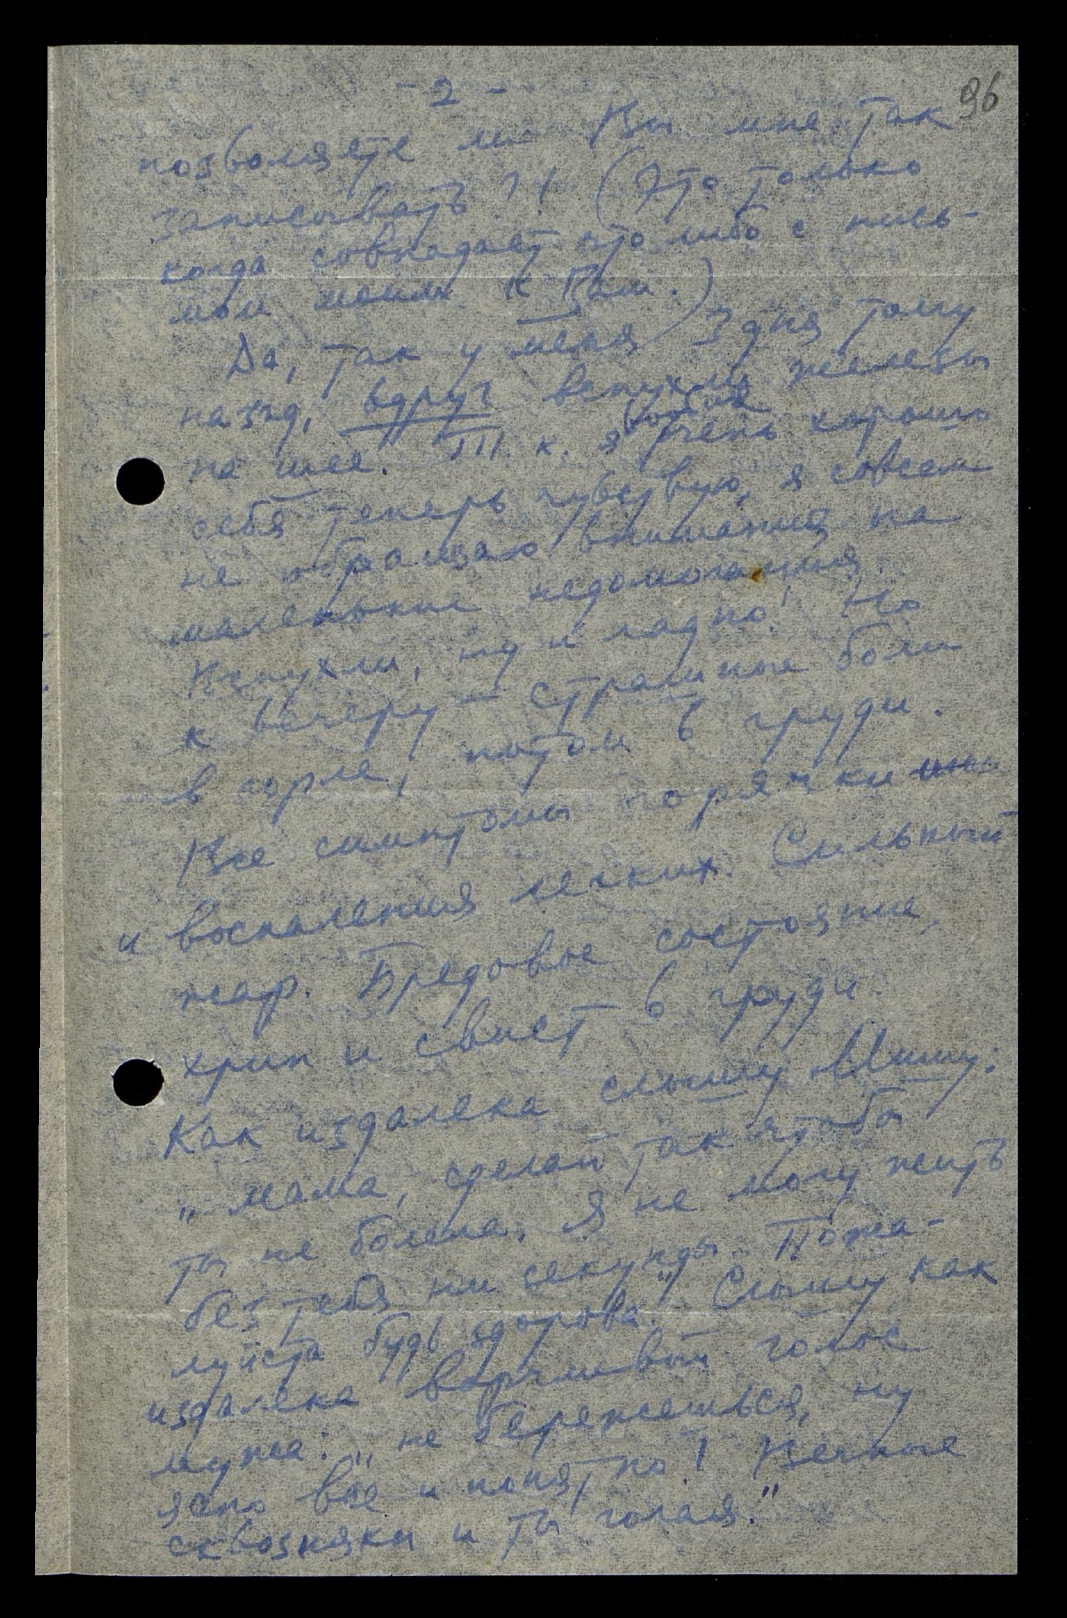 96
- 2 -
позволяете ли Вы мне так
записывать?! (Это только
когда совпадает что либо с пись-
мом моим к Вам.)
Да, так у меня 3 дня тому
назад, вдруг вспухли железы
на шее. Т.к. я вообще очень хорошо
себя теперь чувствую, я совсем
не обращаю внимания на
маленькие недомогания.
Вспухли, ну и ладно! Но
к вечеру – страшные боли
в горле, потом в груди.
Все симптомы горячки
и воспаления легких. Сильный
жар. Бредовое состояние,
хрип и свист в груди.
Как издалека слышу Мишу:
„мама, сделай так чтобы
ты не болела. Я не могу жить
без тебя ни секунды. Пожа-
луйста будь здорова." Слышу как
издалека ворчливый голос
мужа: „не бережешься, ну
ясно все и понятно! Вечные
сквозняки и ты голая."